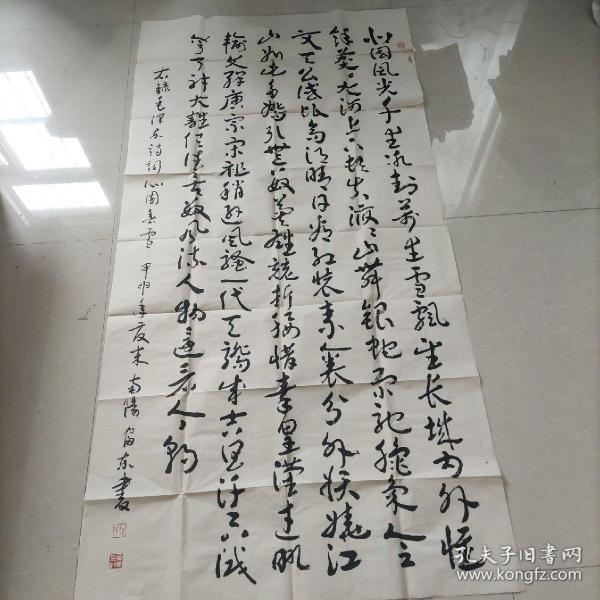 北国风光千里冰封万里雪飘望长城内外惟
余莽々大河上下顿失滔々山舞银蛇原驰蜡象欲与
天公试比高须晴日看红装素裹分外妖娆江
山如此多娇引无数英雄竞折腰惜秦皇汉武略
输文采唐宗宋祖稍逊风骚一代天骄成吉思汗只识
弯弓射大雕俱往矣数风流人物还看今朝
右录毛泽东诗词沁园春雪 甲申年夏末 南阳 富东书
孔夫子旧书网
www.kongfz.com